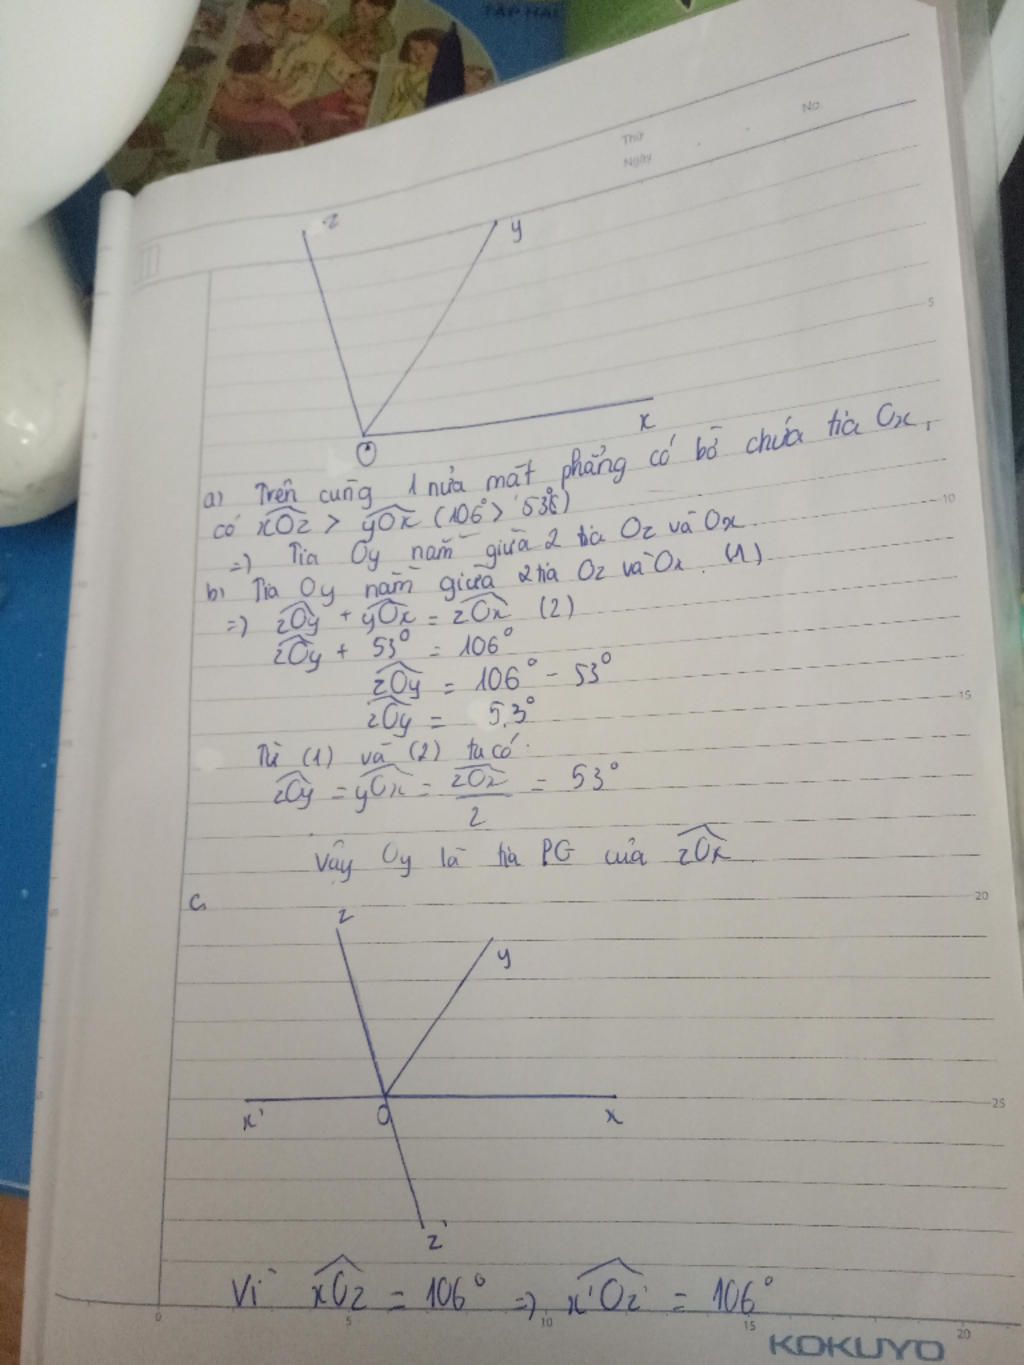 TẬP HAI
Thứ
Ngày
No.
z
y
x
O
5
a) Trên cùng 1 nửa mặt phẳng có bờ chứa tia Ox,
có xOz > yOx (106° > 53°)
10
=) Tia Oy nằm giữa 2 tia Oz và Ox
b) Tia Oy nằm giữa 2 tia Oz và Ox. (1)
=) zOy + yOx = zOx (2)
zOy + 53° = 106°
zOy = 106° - 53°
15
zOy = 53°
Từ (1) và (2) ta có:
zOy = yOx = zOx/2 = 53°
Vậy Oy là tia PG của zOx
c.
20
z
y
x'
O
x
25
z'
Vì xOz = 106° =) x'Oz' = 106°
0 5 10 15 20
KOKUYO